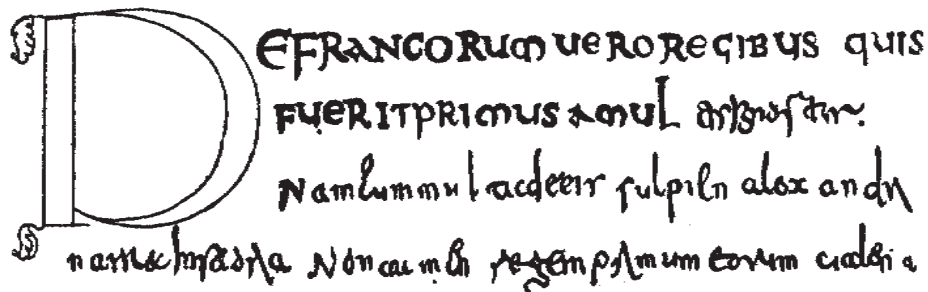 DE FRANCORUM UERO REGIBUS QUIS
FUERIT PRIMUS AMUL ignoratur.
Nam cum mul ta de eis sulpici alexandri
narrat historia Non tamen regem primum eorum